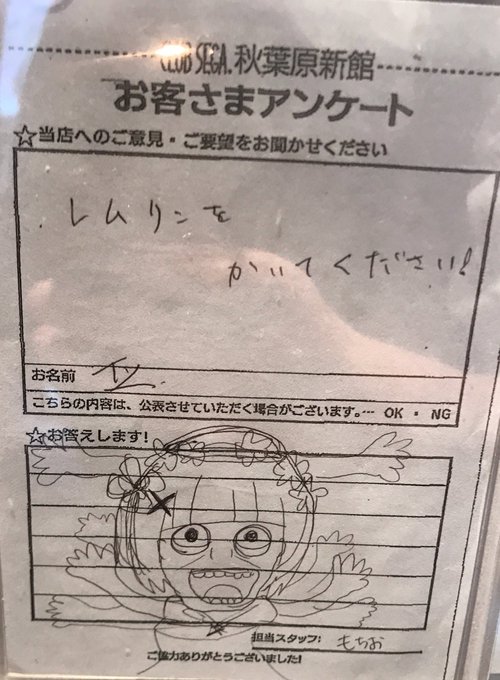 CLUB SEGA. 秋葉原新館
お客さまアンケート
☆当店へのご意見・ご要望をお聞かせください
レムリンを
かいてください!
お名前
こちらの内容は、公表させていただく場合がございます。… OK ・ NG
☆お答えします!
担当スタッフ: もちお
ご協力ありがとうございました!